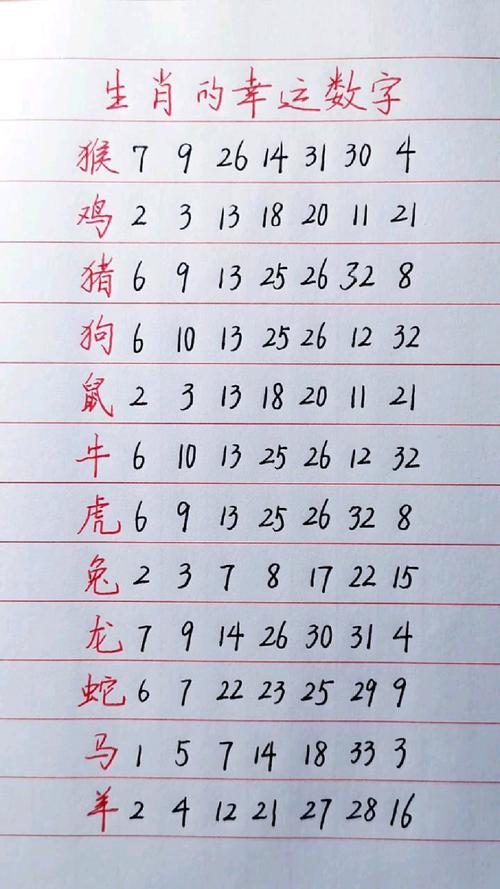 生肖的幸运数字
猴 7 9 26 14 31 30 4
鸡 2 3 13 18 20 11 21
猪 6 9 13 25 26 32 8
狗 6 10 13 25 26 12 32
鼠 2 3 13 18 20 11 21
牛 6 10 13 25 26 12 32
虎 6 9 13 25 26 32 8
兔 2 3 7 8 17 22 15
龙 7 9 14 26 30 31 4
蛇 6 7 22 23 25 29 9
马 1 5 7 14 18 33 3
羊 2 4 12 21 27 28 16